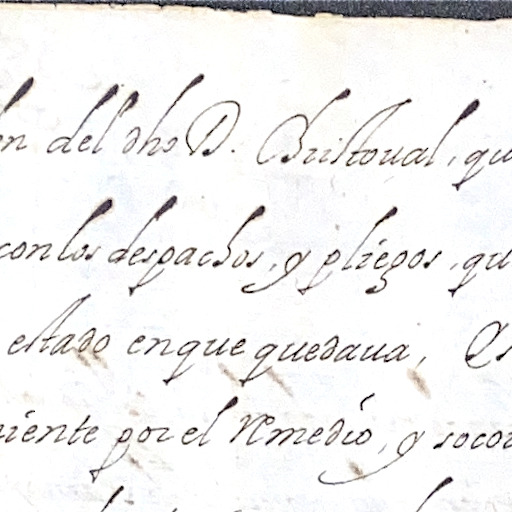 en del dho D. Christoual, qu
con los despachos, y pliegos, qu
estado en que quedaua, Es
niente por el Remedio, y socor